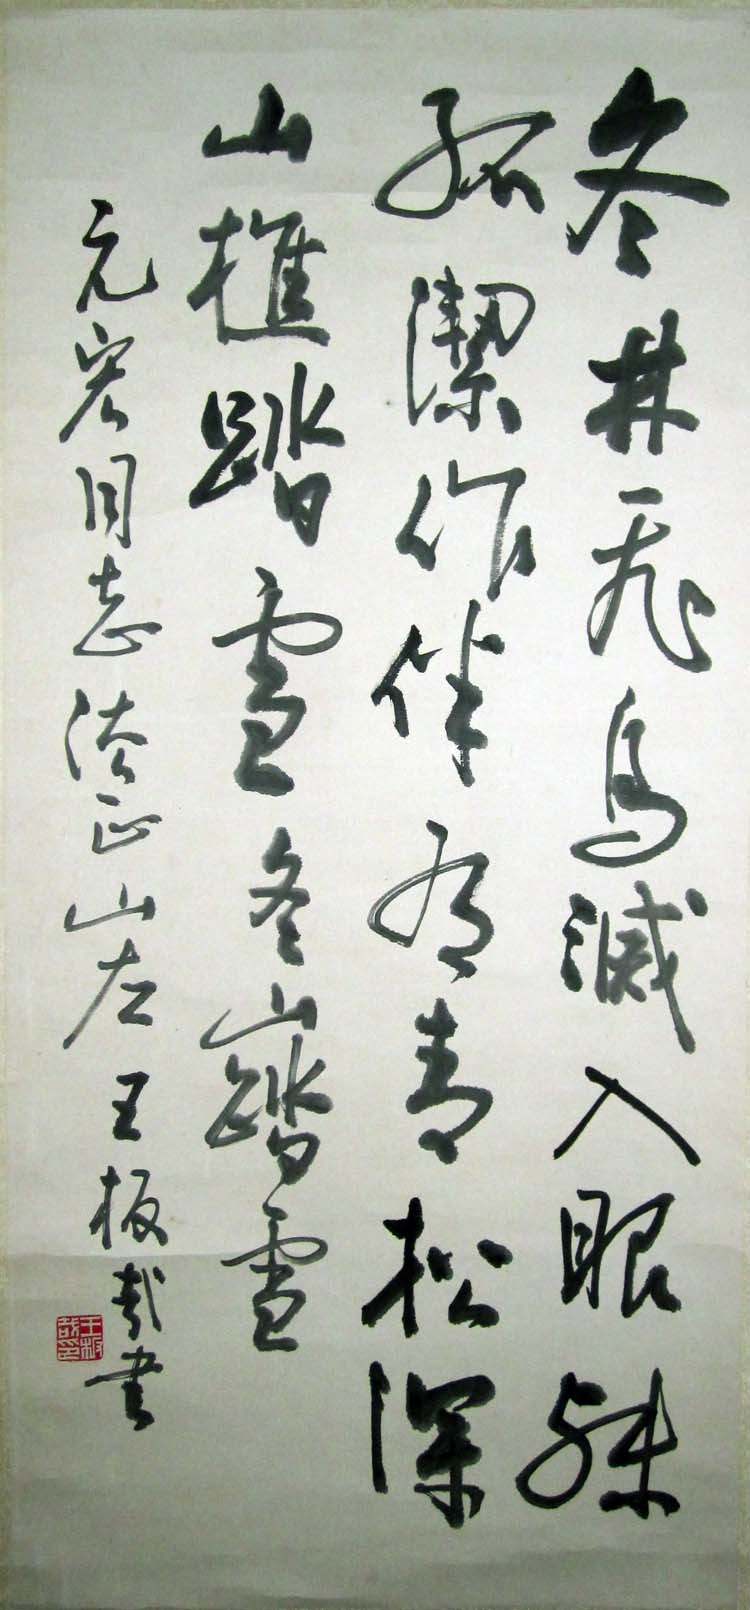 冬林飛鳥滅入眼殊
孤潔作伴有青松深
山樵踏雪冬山踏雪
元宏同志法正山左王板哉書
王板哉印